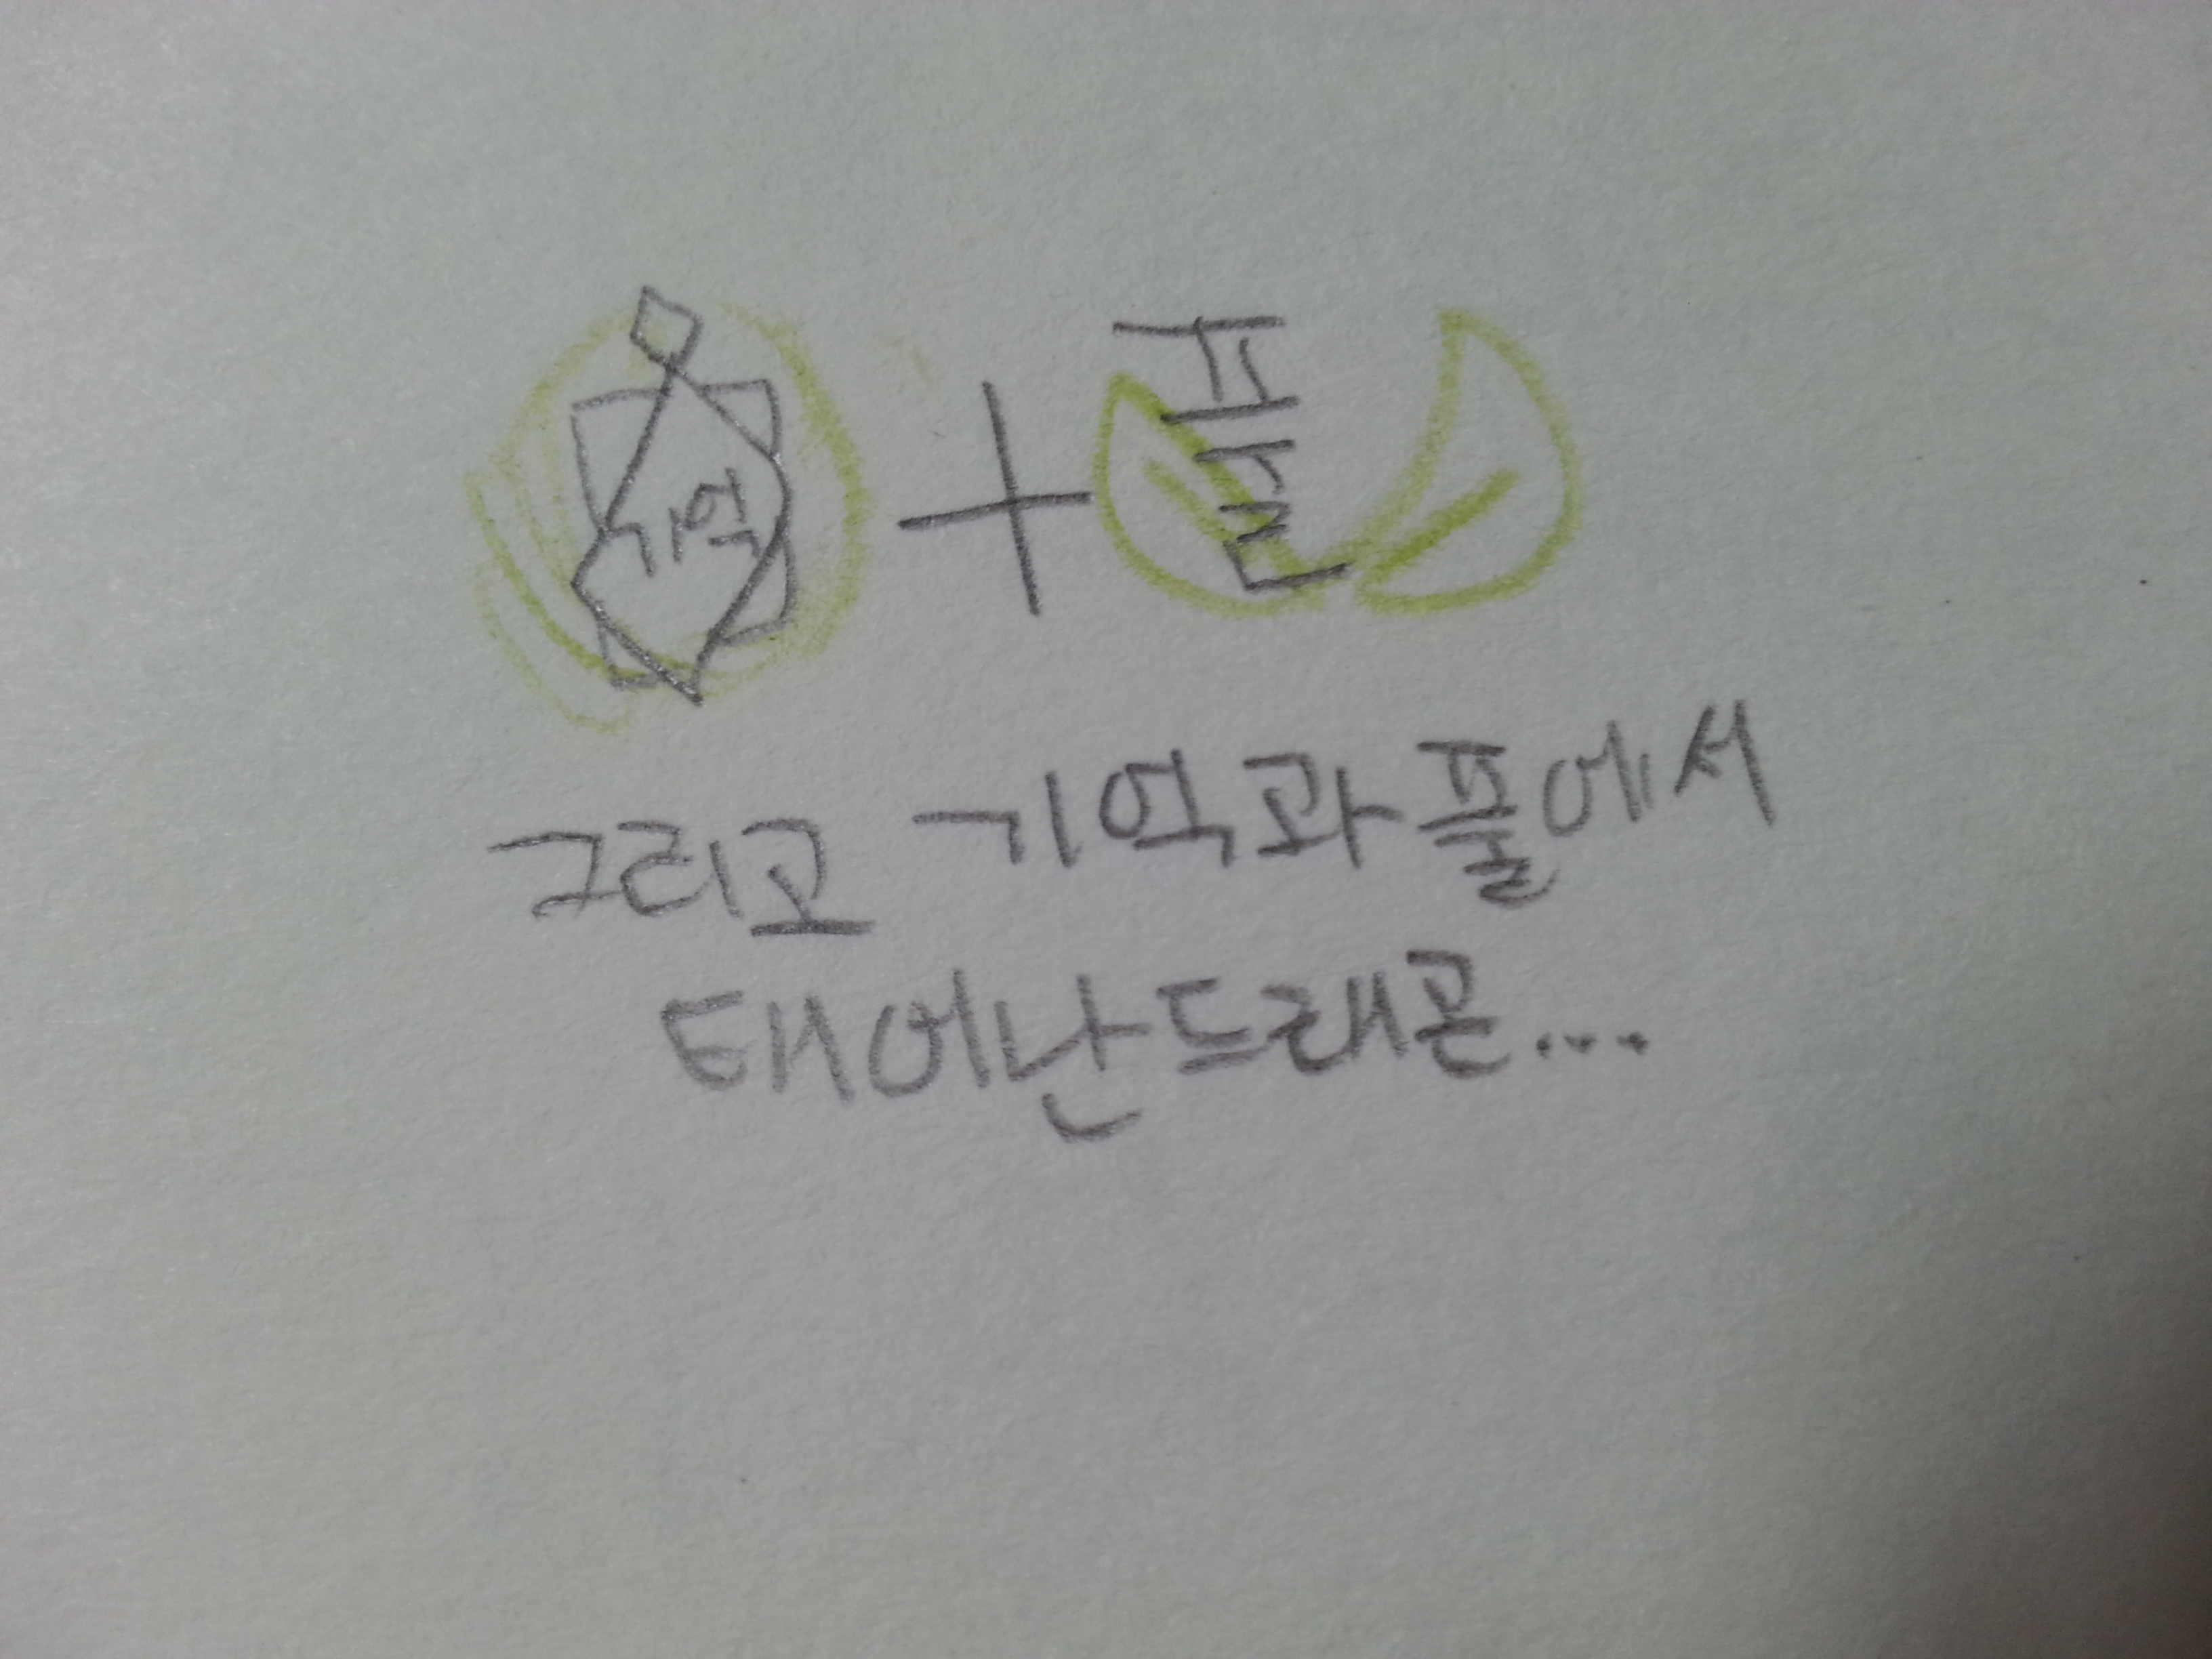 기억 + 풀
그리고 기억과 풀에서
태어난 드래곤...